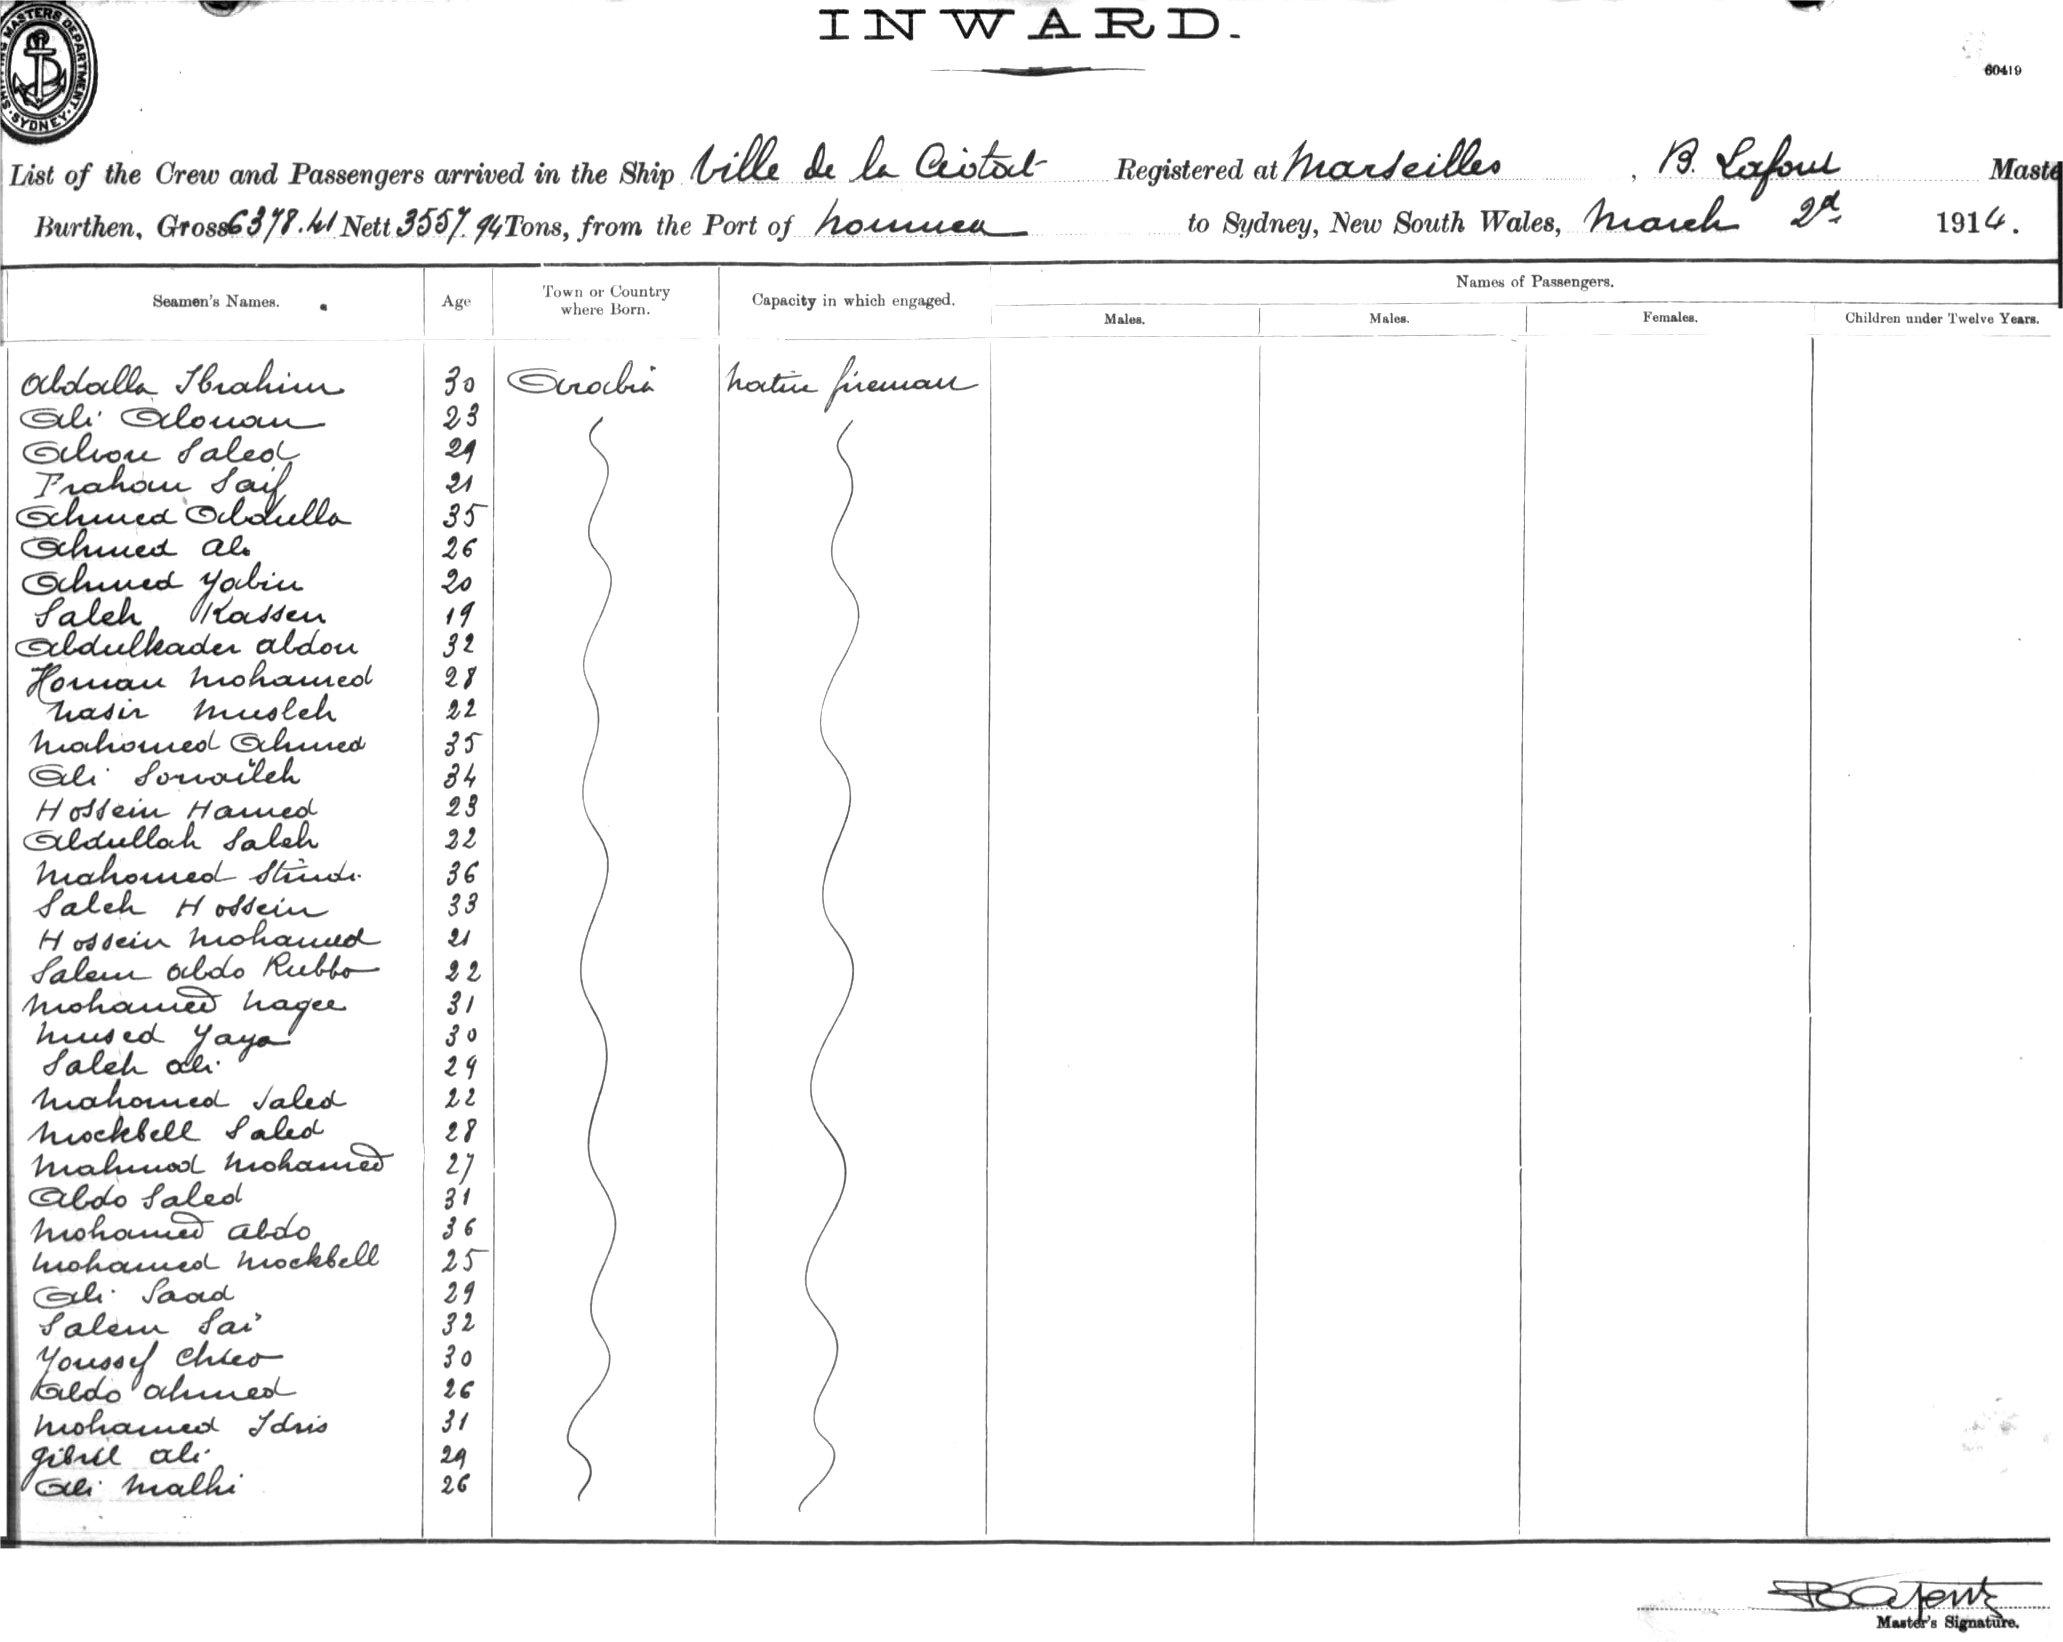 INWARD.
SHIPPING MASTERS DEPARTMENT SYDNEY
60419
List of the Crew and Passengers arrived in the Ship Ville de la Ciotat Registered at Marseilles, B. Lafont Maste
Burthen, Gross 6378.41 Nett 3557.94 Tons, from the Port of Noumea to Sydney, New South Wales, March 2d 1914.
Seamen's Names. Age Town or Country where Born. Capacity in which engaged. Names of Passengers.
Males. Males. Females. Children under Twelve Years.
Abdalla Ibrahim 30 Arabia Native fireman
Ali Alouan 23
Saled 29
Saif 21
Ahmed Abdulla 35
Ahmed Ali 26
Ahmed Yabin 20
Saleh Kassen 19
Abdulkader Abdou 32
Homan Mohamed 28
Nasir Musleh 22
Mahomed Ahmed 35
Ali Sowaileh 34
Hossein Hamed 23
Abdullah Saleh 22
Mahomed 36
Saleh Hossein 33
Hossein Mohamed 21
Salem Abdo Rubbo 22
Mohamed Nagee 31
Mused Yaya 30
Saleh Ali 29
Mahomed Saled 22
Mockbell Saled 28
Mahmod Mohamed 27
Abdo Saled 31
Mohamed Abdo 36
Mohamed Mockbell 25
Ali Saad 29
Salem Sai 32
Youssef 30
Abdo Ahmed 26
Mohamed Idris 31
Gibril Ali 29
Ali Malhi 26
BLafont
Master's Signature.